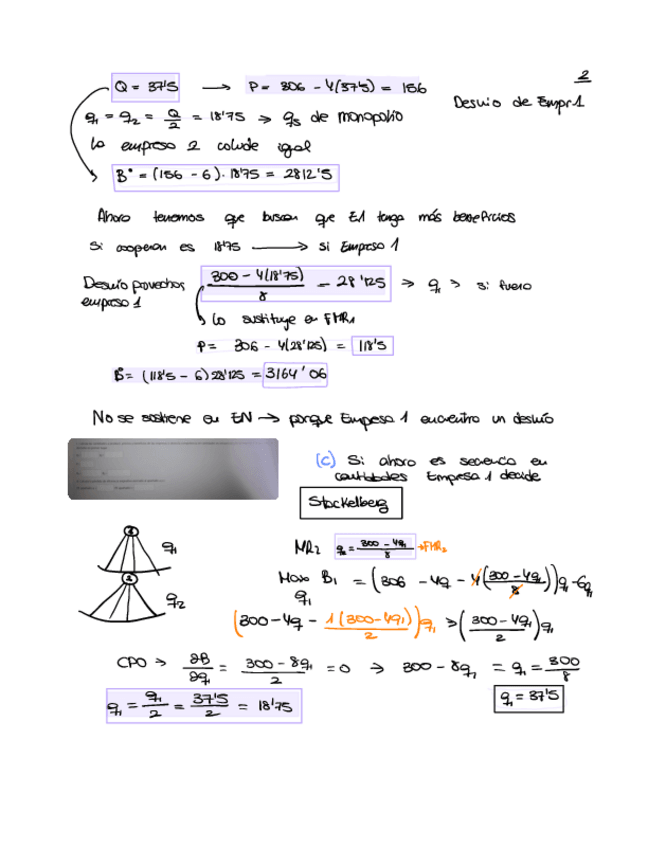 2
Q = 37'5 → P = 306 - 4(37'5) = 156
Desvio de Empr1
q1 = q2 = Q/2 = 18'75 → q's de monopolio
La empresa 2 colude igual
B° = (156 - 6) · 18'75 = 2812'5
Ahora tenemos que buscan que E1 tenga más beneficios
Si cooperan es 18'75 → si Empresa 1
Desvio provechos 300 - 4(18'75)/8 = 28'125 → q1 > si fuera
empresa 1
Lo sustituye en FMR1
P = 306 - 4(28'125) = 118'5
B° = (118'5 - 6) 28'125 = 3164'06
No se sostiene en EN → porque Empesa 1 encuentra un desvio
(c) Si ahora es secuencia en
cantidades Empresa 1 decide
Stackelberg
1 q1
2 q2
MR2 q2 = 300 - 4q1/8 → FMR2
Max B1 = (306 - 4q - 4(300 - 4q1/8)) q1 - 6q1
q1
(300 - 4q - 1(300 - 4q1)/2) q1 → (300 - 4q1/2) q1
CPO → ∂B/∂q1 = 300 - 8q1/2 = 0 → 300 - 8q1 = q1 = 300/8
q1 = q1/2 = 37'5/2 = 18'75
q1 = 37'5